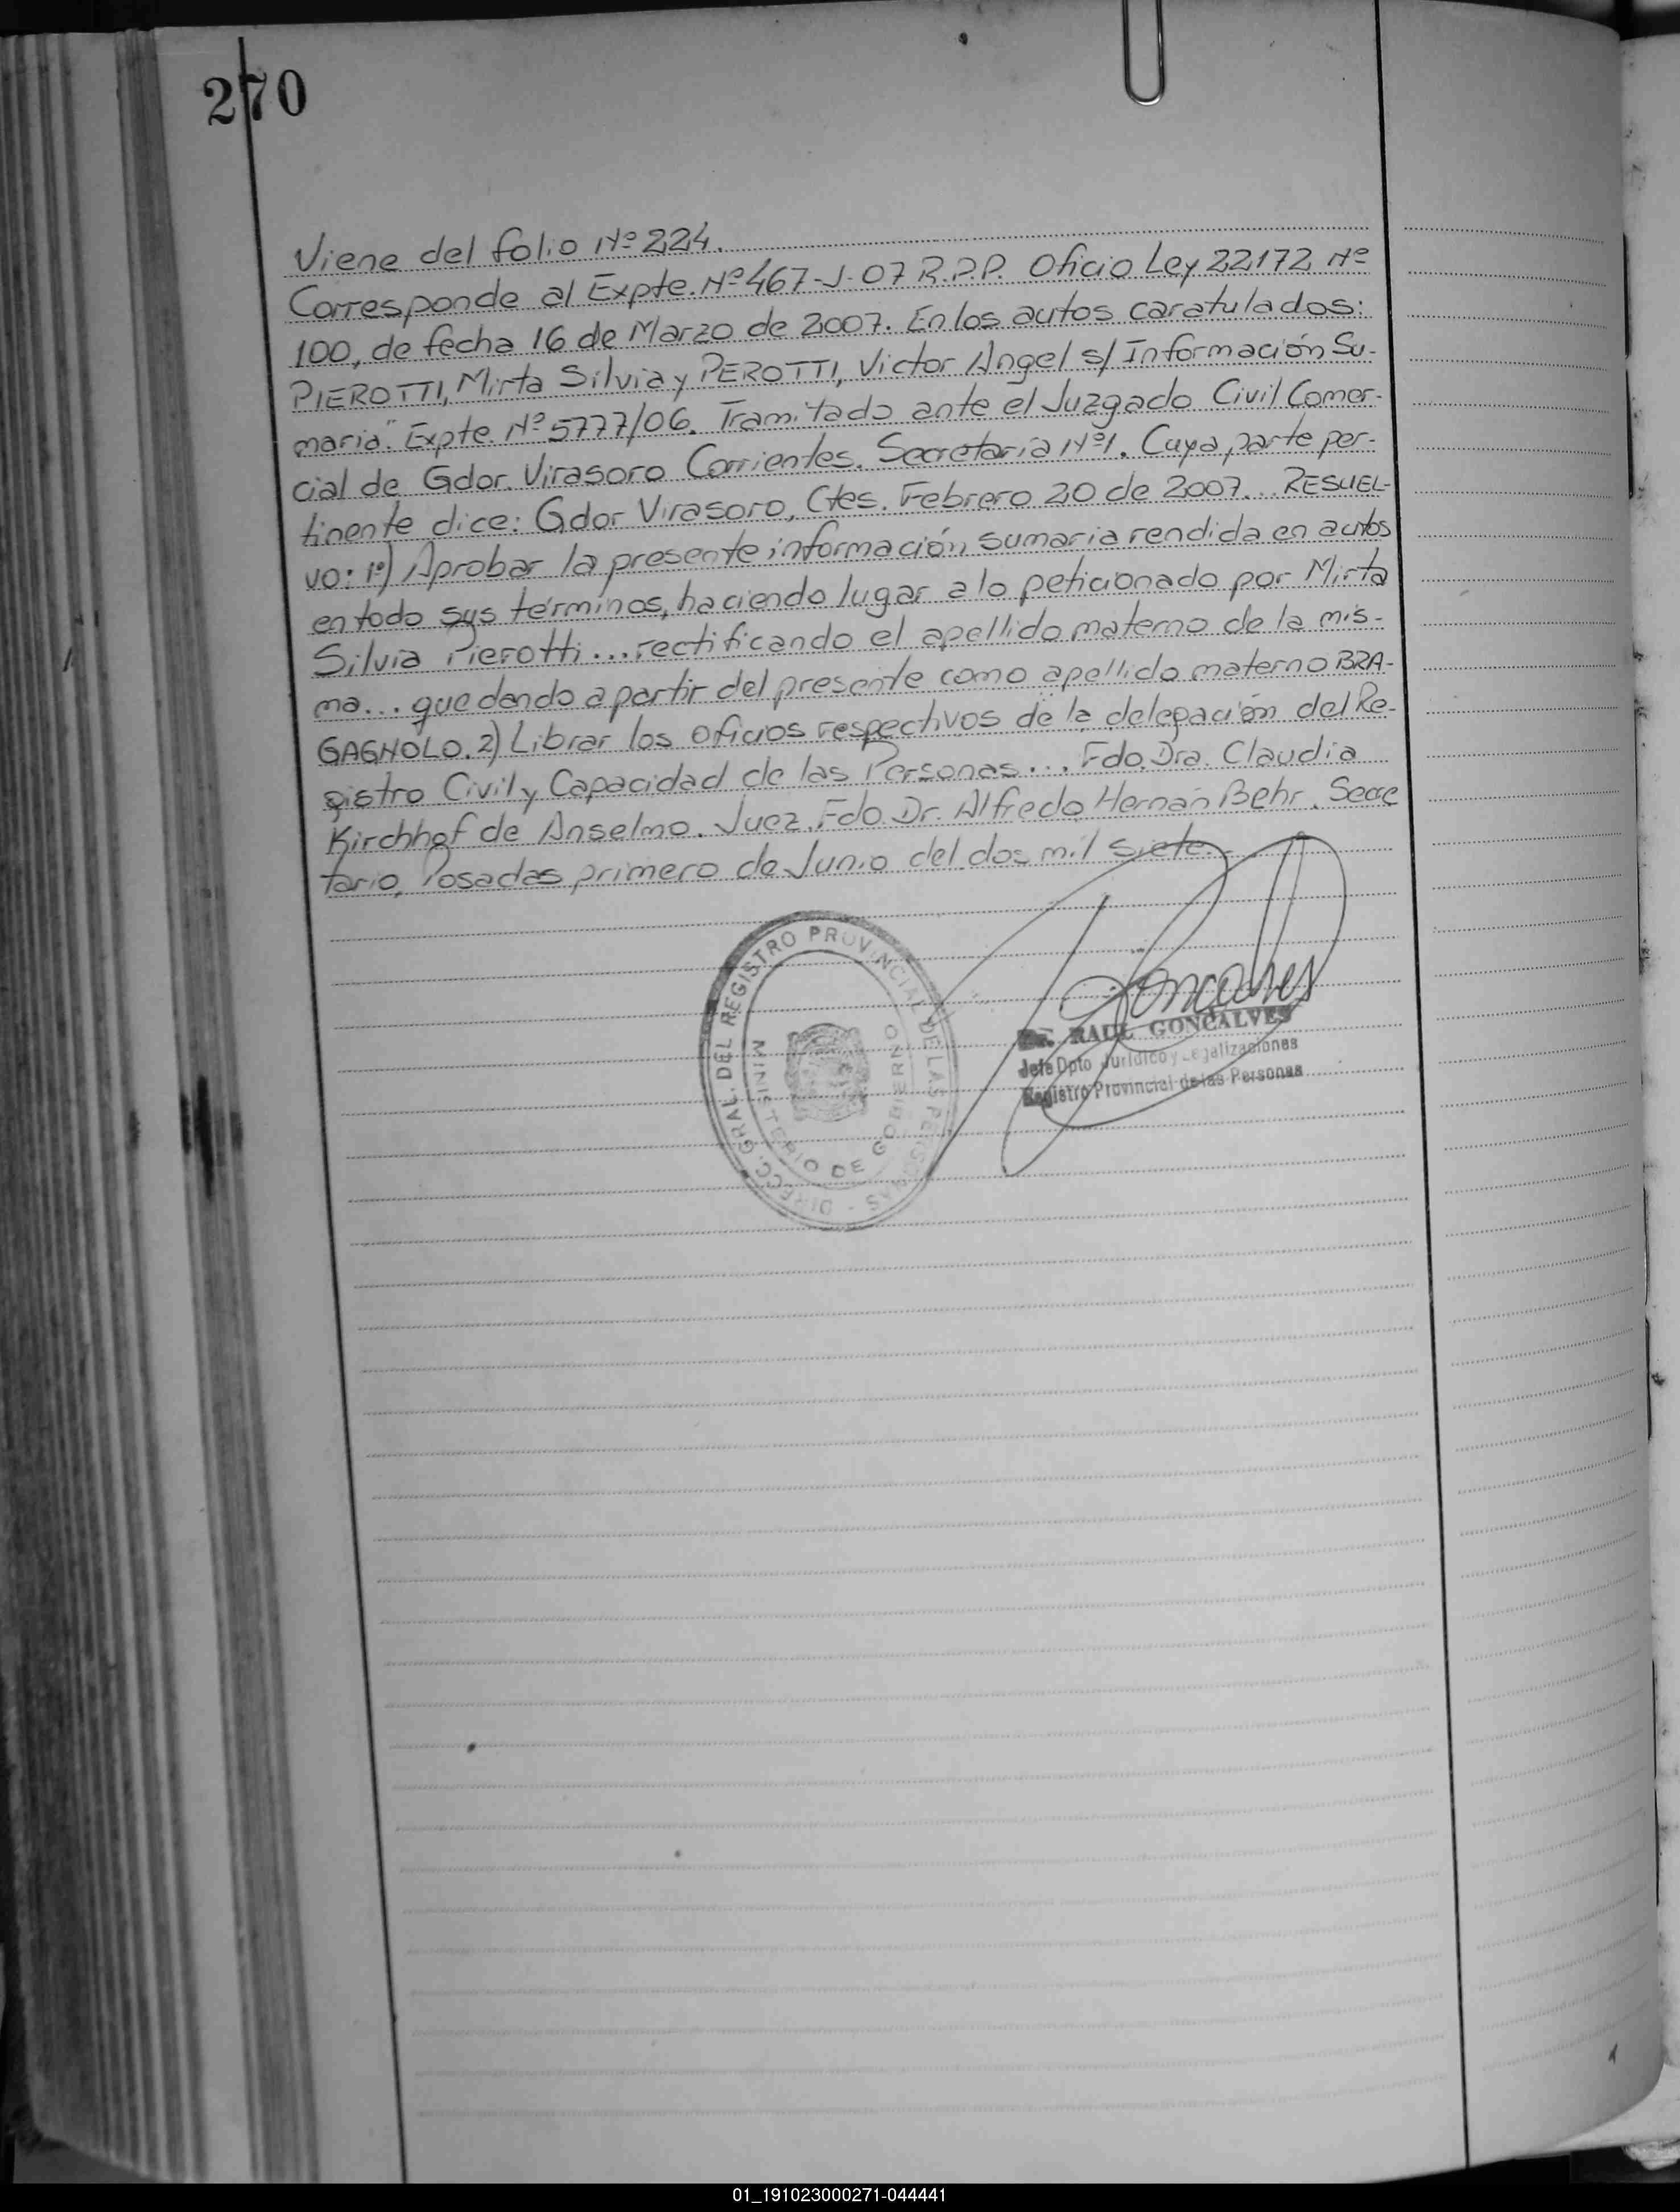 270
Viene del folio Nº 224.
Corresponde al Expte. Nº 467-J-07 R.P.P. Oficio Ley 22172 Nº
100, de fecha 16 de Marzo de 2007. En los autos caratulados:
PIEROTTI, Mirta Silvia y PEROTTI, Victor Angel s/ Información Su-
maria". Expte. Nº 5777/06. Tramitado ante el Juzgado Civil Comer-
cial de Gdor. Virasoro Corrientes. Secretaría Nº 1. Cuya parte per-
tinente dice: Gdor Virasoro, Ctes. Febrero 20 de 2007... RESUEL-
VO: 1º) Aprobar la presente información sumaria rendida en autos
en todo sus términos, haciendo lugar a lo peticionado por Mirta
Silvia Pierotti... rectificando el apellido materno de la mis-
ma... quedando a partir del presente como apellido materno BRA-
GAGNOLO. 2) Librar los oficios respectivos de la delegación del Re-
gistro Civil y Capacidad de las Personas... Fdo. Dra. Claudia
Kirchhof de Anselmo. Juez. Fdo. Dr. Alfredo Hernán Behr. Secre
tario, Posadas primero de Junio del dos mil siete.-
DIRECC. GRAL. DEL REGISTRO PROVINCIAL DE LAS PERSONAS -
MINISTERIO DE GOBIERNO
Goncalves
Dr. RAUL GONCALVES
Jefe Dpto Jurídico y Legalizaciones
Registro Provincial de las Personas
01_191023000271-044441